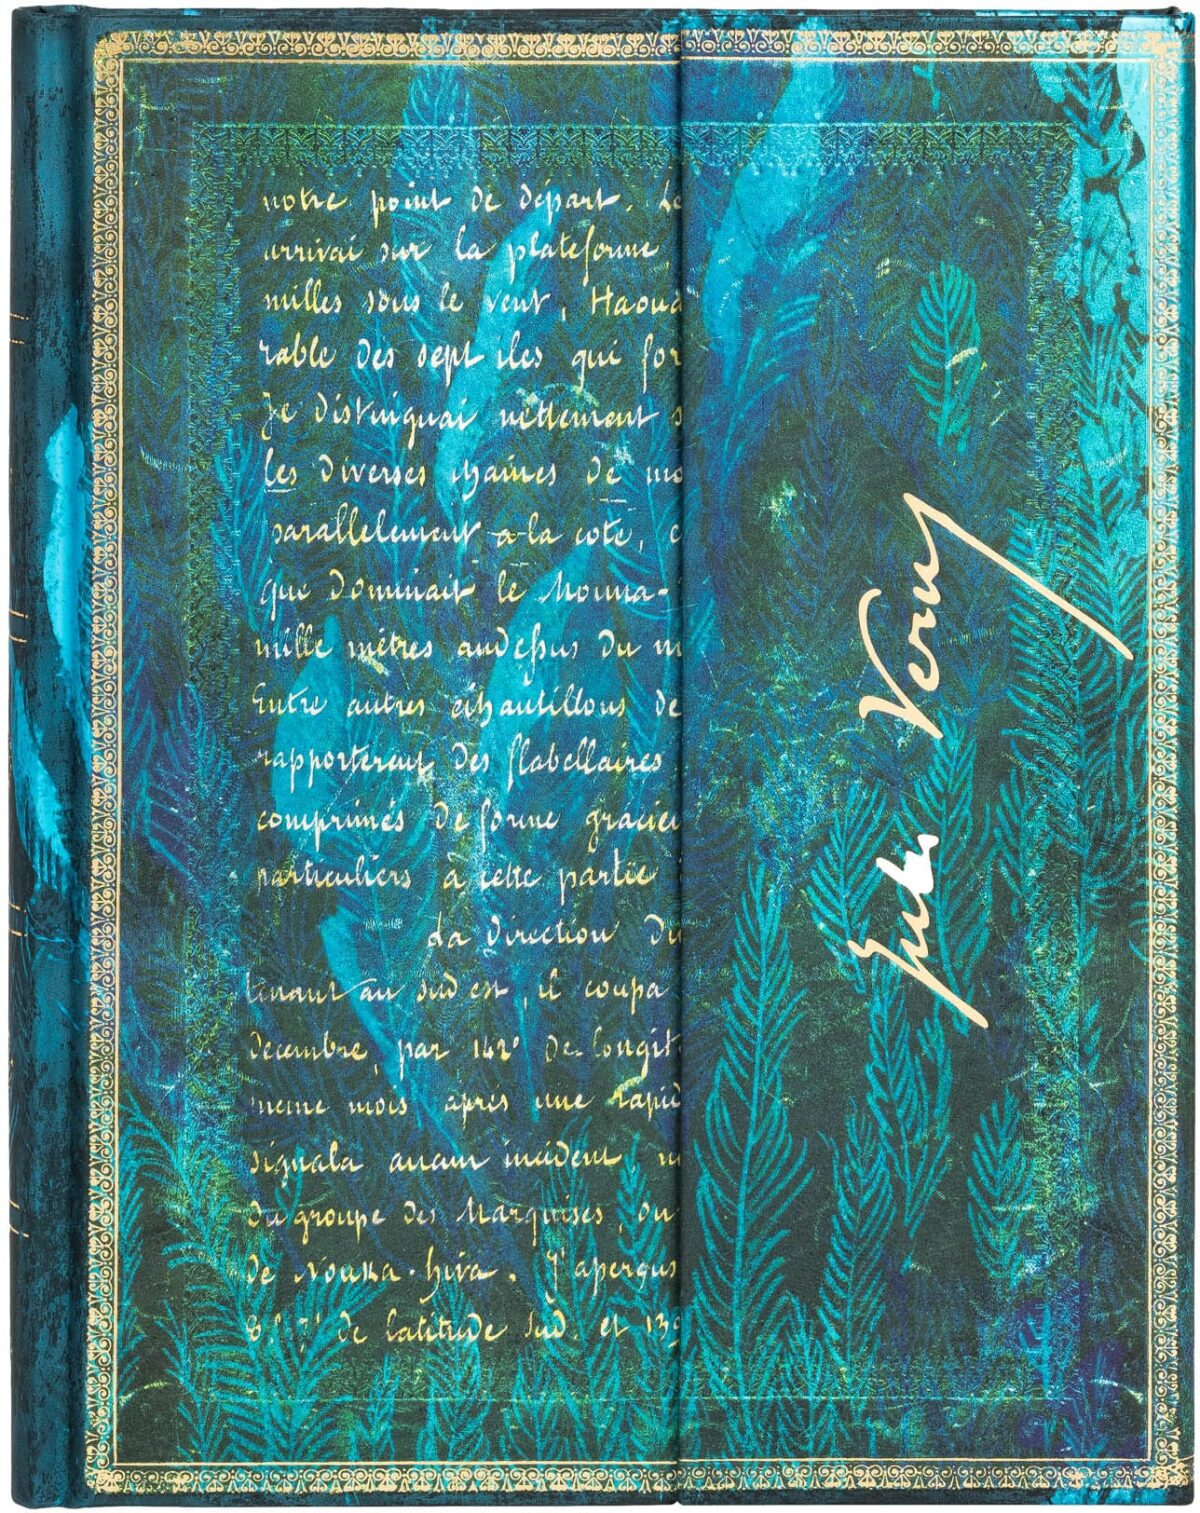 notre point de départ. Le
arrivai sur la plateforme
milles sous le vent, Haoua
rable des sept iles qui for
Je distinguai nettement s
les diverses chaines de mo
parallelement a la cote, c
que dominait le Mouna-
mille mètres audessus du m
Entre autres échantillons de
rapporterent des flabellaires
comprimés de forme gracieu
particuliers à cette partie
La direction du
tenant au sud est, il coupa
décembre, par 142° de longit
meme mois après une rapid
signala aucun incident, n
du groupe des Marquises, ou
de Nouka-hiva. J'aperçus
de latitude sud, et 139
Jules Verne